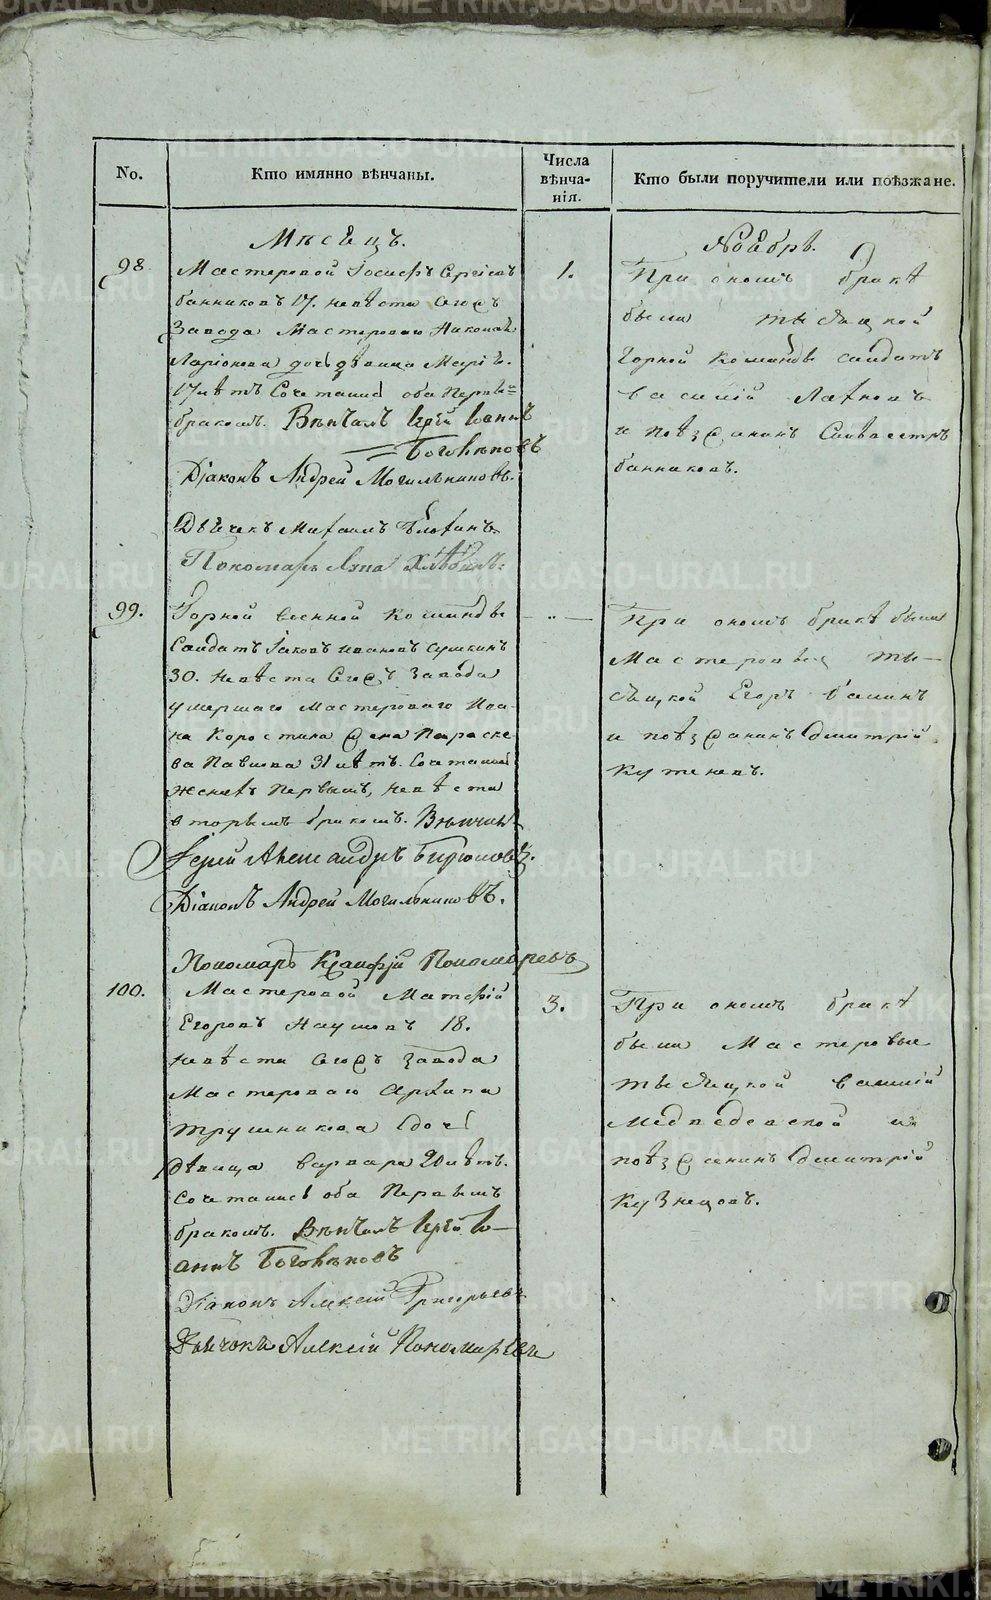 No.
Кто имянно вѣнчаны.
Числа
вѣнча-
нія.
Кто были поручители или поѣзжане.
Мѣсяцъ.
Ноябрь.
98.
Мастеровой Іосифъ Сергіевъ
банниковъ 17. невѣста сегожъ
Завода Мастероваго Николая
Ларіонова дочь дѣвица Марія.
17 лѣтъ Сочетались оба Первы=
бракомъ. Вѣнчалъ Іерей Іоаннъ
Боголѣповъ
Діаконъ Андрей Могильниковъ.
Дьячекъ Михаилъ
Пономарь Хлѣбинъ.
1.
При ономъ бракѣ
были тысяцкой
Горной Команды салдатъ
василій Латновъ
и поѣзжанинъ Силвестръ
банниковъ.
99.
Горной военной команды
Салдатъ Іаковъ ивановъ
30. невѣста Сегожъ Завода
умершаго Мастероваго Иса-
ка Коростина жена Параске-
ва Павлова 31 лѣтъ. Сочетались
женихъ Первымъ, невѣста
вторымъ бракомъ. Вѣнчалъ
Іерей Александръ Бирюковъ.
Діаконъ Андрей Могильниковъ.
Пономарь Пономаревъ
— „ —
При ономъ бракѣ были
Мастеровые ты-
сяцкой Егоръ
и поѣзжанинъ Дмитрій
Кутеневъ.
100.
Мастеровой Матфій
Егоровъ Наумовъ 18.
невѣста сегожъ завода
Мастероваго Архипа
Трушникова дочь
дѣвица варвара 20 лѣтъ.
Сочетались оба Первымъ
бракомъ. Вѣнчалъ Іерей Іо-
аннъ Боголѣповъ
Діаконъ Алексій Григорьевъ
Дьячокъ Алексій Пономаревъ
3.
При ономъ бракѣ
были Мастеровые
тысяцкой василій
Медведевской и
поѣзжанинъ Дмитрій
Кузнецовъ.
METRIKI.GASO-URAL.RU